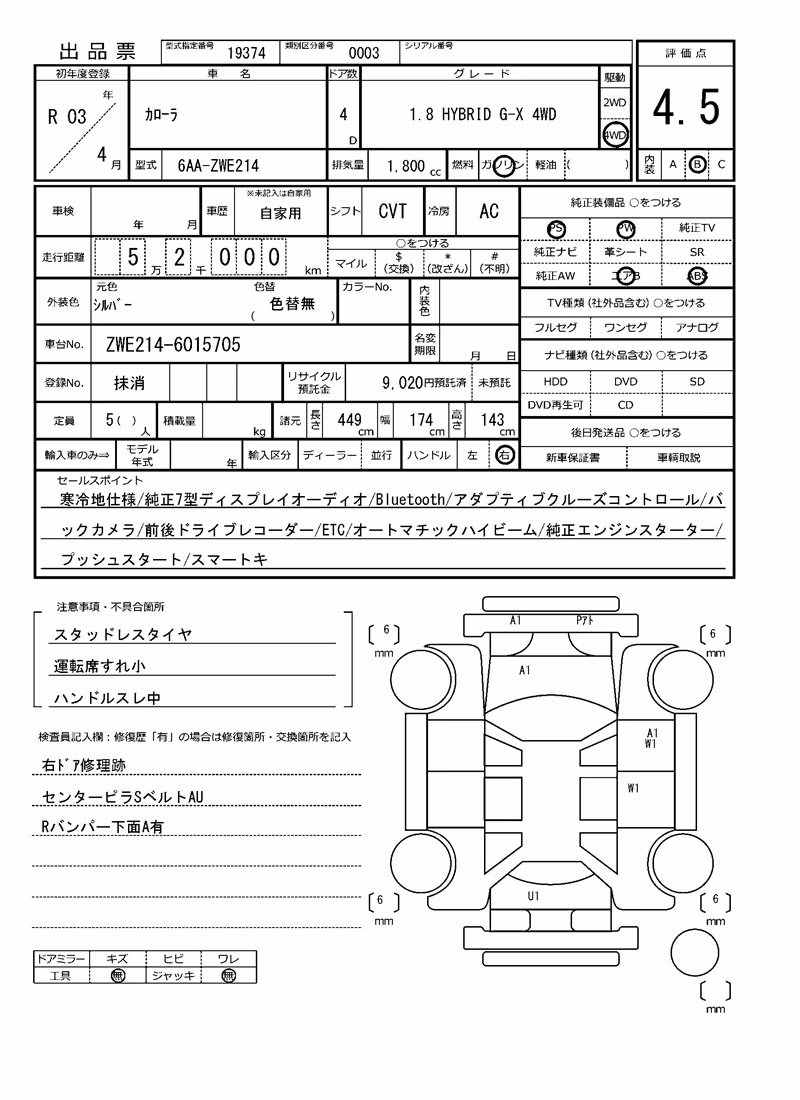 出品票 型式指定番号 19374 類別区分番号 0003 シリアル番号
評価点
初年度登録 車名 ドア数 グレード 駆動
R 03 年 4 月
カローラ
4 D
1.8 HYBRID G-X 4WD
2WD
4WD
4.5
型式 6AA-ZWE214 排気量 1,800 cc 燃料 ガソリン 軽油 ( )
内装 A B C
車検 年 月 車歴 ※未記入は自家用 自家用 シフト CVT 冷房 AC
純正装備品 ○をつける
PS PW 純正TV
走行距離 5 万 2 千 0 0 0 km
○をつける
マイル $ (交換) * (改ざん) # (不明)
純正ナビ 革シート SR
純正AW エアB ABS
外装色 元色 シルバー 色替 ( 色替無 ) カラーNo. 内装色
TV種類(社外品含む) ○をつける
フルセグ ワンセグ アナログ
車台No. ZWE214-6015705 名変期限 月 日
ナビ種類(社外品含む) ○をつける
HDD DVD SD
DVD再生可 CD
登録No. 抹消 リサイクル預託金 9,020円預託済 未預託
定員 5( ) 人 積載量 kg 諸元 長さ 449 cm 幅 174 cm 高さ 143 cm
後日発送品 ○をつける
新車保証書 車輌取説
輸入車のみ⇒ モデル年式 年 輸入区分 ディーラー 並行 ハンドル 左 右
セールスポイント
寒冷地仕様/純正7型ディスプレイオーディオ/Bluetooth/アダプティブクルーズコントロール/バ
ックカメラ/前後ドライブレコーダー/ETC/オートマチックハイビーム/純正エンジンスターター/
プッシュスタート/スマートキ
注意事項・不具合箇所
スタッドレスタイヤ
運転席すれ小
ハンドルスレ中
検査員記入欄：修復歴「有」の場合は修復箇所・交換箇所を記入
右ドア修理跡
センターピラSベルトAU
Rバンパー下面A有
ドアミラー キズ ヒビ ワレ
工具 無 ジャッキ 無
A1 Pアト
6 mm
6 mm
A1
A1
W1
W1
U1
6 mm
6 mm
mm